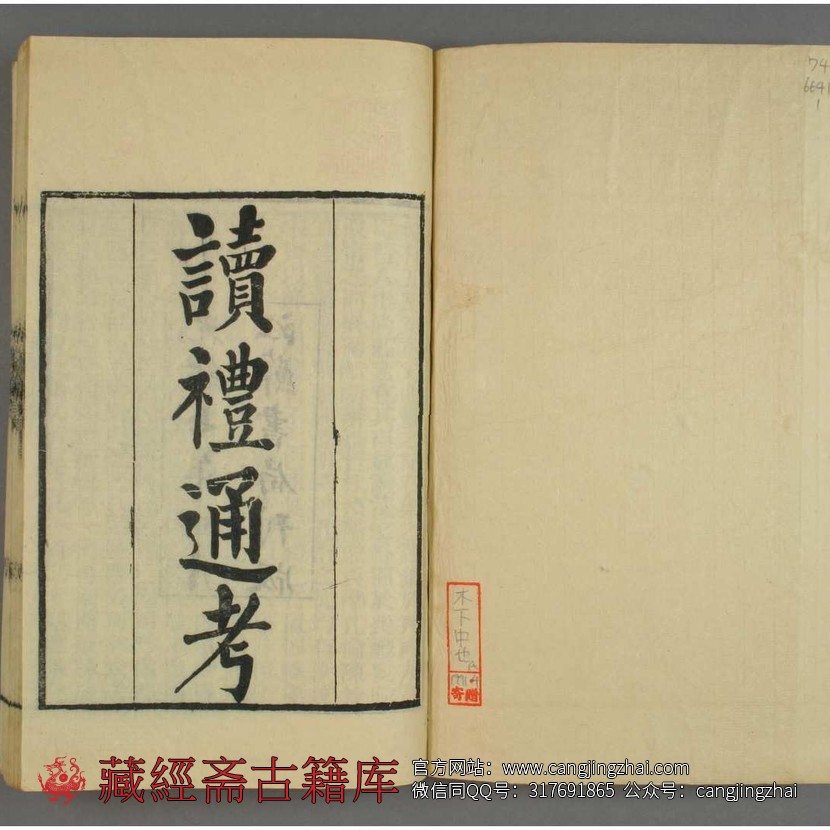 讀禮通考
74
6641
1
木下中也
寄贈
藏經斋古籍库
官方网站：www.cangjingzhai.com
微信同QQ号：317691865 公众号：cangjingzhai